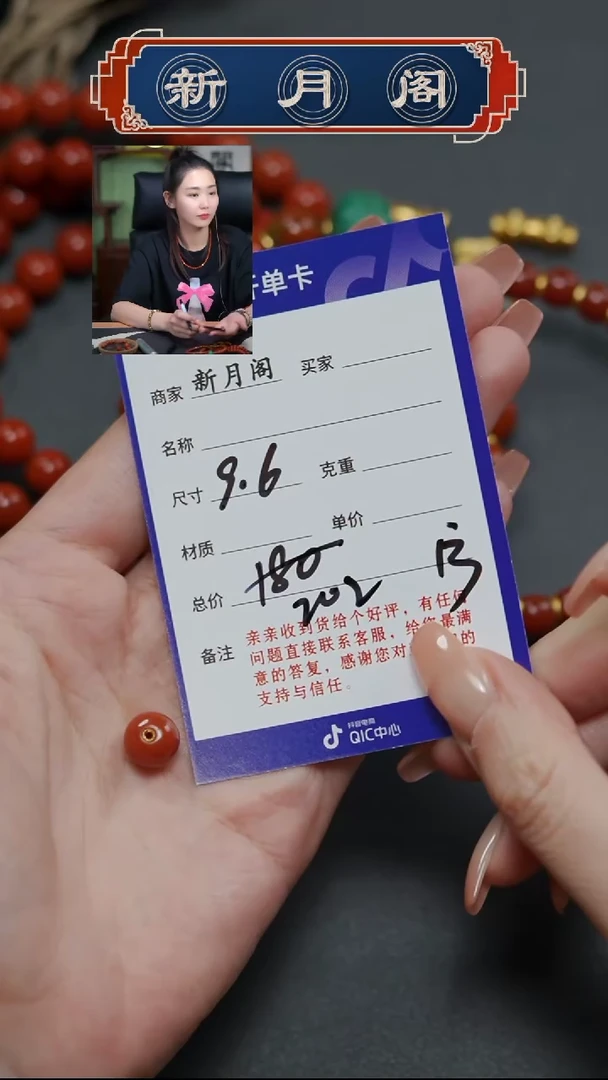 新月阁
单卡
商家 新月阁 买家
名称
尺寸 9.6 克重
材质 单价
总价 180
202
备注 亲亲收到货给个好评，有任何
问题直接联系客服，给您最满
意的答复，感谢您对 的
支持与信任。
抖音电商
QIC中心